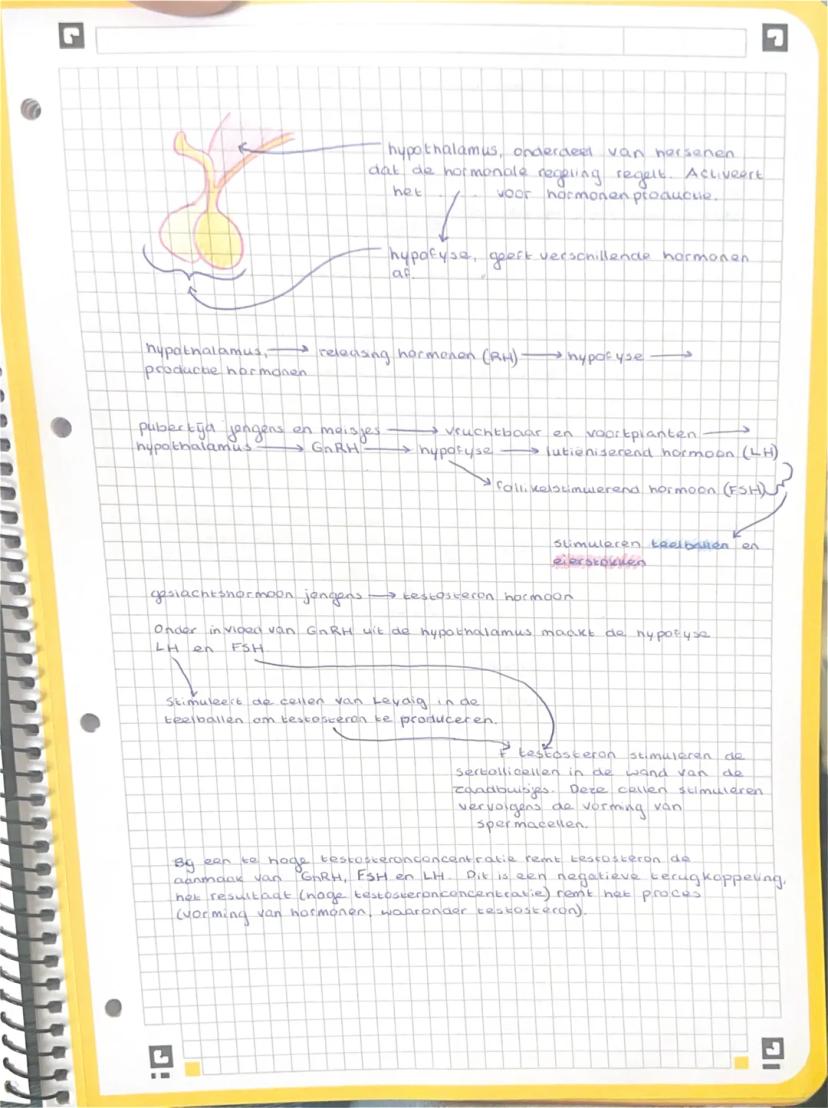 hypothalamus, onderdeel van hersenen
dat de hormonale regeling regelt. Activeert
het . . . voor hormonenproductie.
hypofyse, geeft verschillende hormonen
af.
hypothalamus, → releasing hormonen (RH) → hypofyse →
productie hormonen
pubertijd jongens en meisjes → vruchtbaar en voortplanten →
hypothalamus → GnRH → hypofyse → lutieniserend hormoon (LH)
follikelstimulerend hormoon (FSH)
stimuleren teelballen en
eierstokken
geslachtshormoon jongens → testosteron hormoon
Onder invloed van GnRH uit de hypothalamus maakt de hypofyse
LH en FSH.
Stimuleert de cellen van Leydig in de
teelballen om testosteron te produceren.
testosteron stimuleren de
sertollicellen in de wand van de
zaadbuisjes. Deze cellen stimuleren
vervolgens de vorming van
spermacellen.
Bij een te hoge testosteronconcentratie remt testosteron de
aanmaak van GnRH, FSH en LH. Dit is een negatieve terugkoppeling,
het resultaat (hoge testosteronconcentratie) remt het proces
(vorming van hormonen, waaronder testosteron).